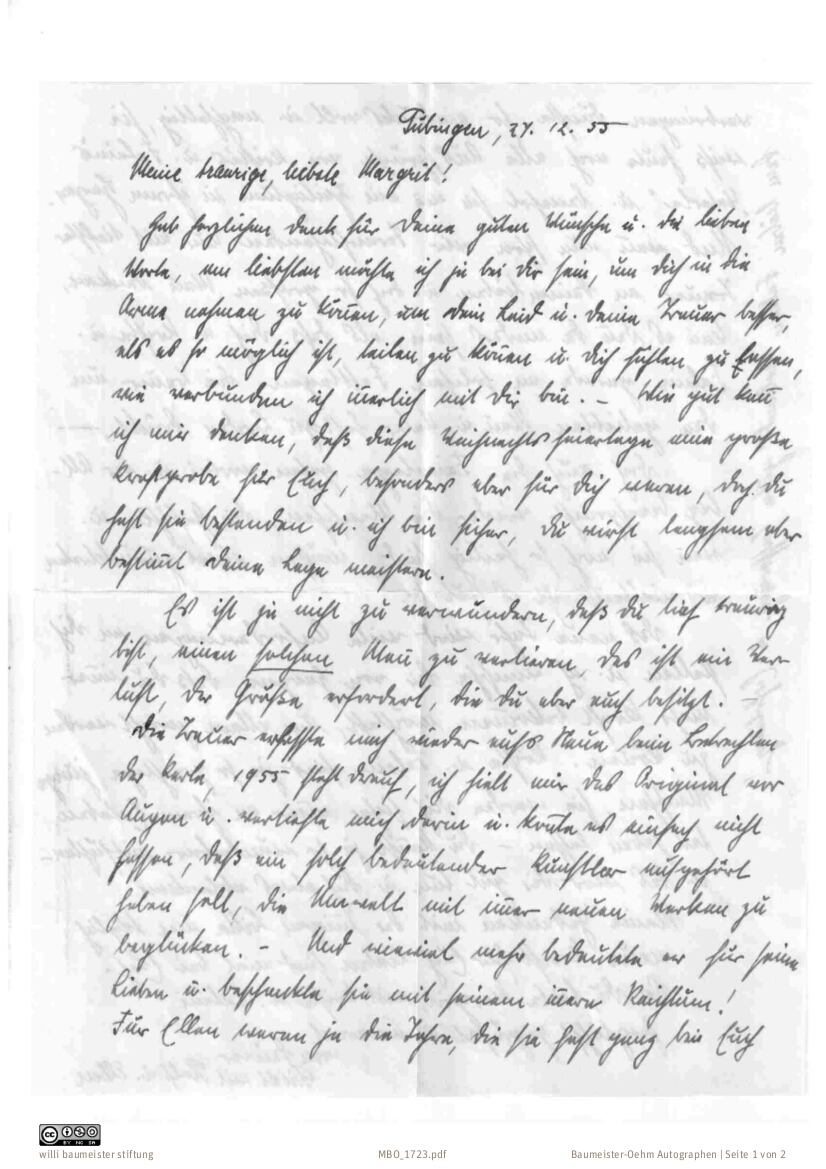 Tübingen, 27. 12. 55
Meine traurige, liebste Margrit!
Hab herzlichen Dank für Deine guten Wünsche u. die lieben
Worte, am liebsten möchte ich ja bei Dir sein, um Dich in die
Arme nehmen zu kön̄en, um Dein Leid u. Deine Trauer besser,
als es so möglich ist, teilen zu kön̄en u. Dich fühlen zu lassen,
wie verbunden ich in̄erlich mit Dir bin. – Wie gut kan̄
ich mir denken, daß diese Weihnachtsfeiertage eine große
Kraftprobe für Euch, besonders aber für Dich waren, doch Du
hast sie bestanden u. ich bin sicher, Du wirst langsam aber
bestim̄t Deine Lage meistern.
Es ist ja nicht zu verwundern, daß Du tief traurig
bist, einen solchen Man̄ zu verlieren, das ist ein Ver-
lust, der Größe erfordert, die Du aber auch besitzt. –
Die Trauer erfasste mich wieder aufs Neue beim Betrachten
der Karte, 1955 steht drauf, ich hielt mir das Original vor
Augen u. vertiefte mich darin u. kon̄te es einfach nicht
fassen, daß ein solch bedeutender Künstler aufgehört
haben soll, die Umwelt mit im̄er neuen Werken zu
beglücken. – Und wieviel mehr bedeutete er für seine
Lieben u. beschenkte sie mit seinem in̄ern Reichtum!
Für Ellen waren ja die Jahre, die sie fast ganz bei Euch
willi baumeister stiftung
MBO_1723.pdf
Baumeister-Oehm Autographen | Seite 1 von 2
CC BY NC SA